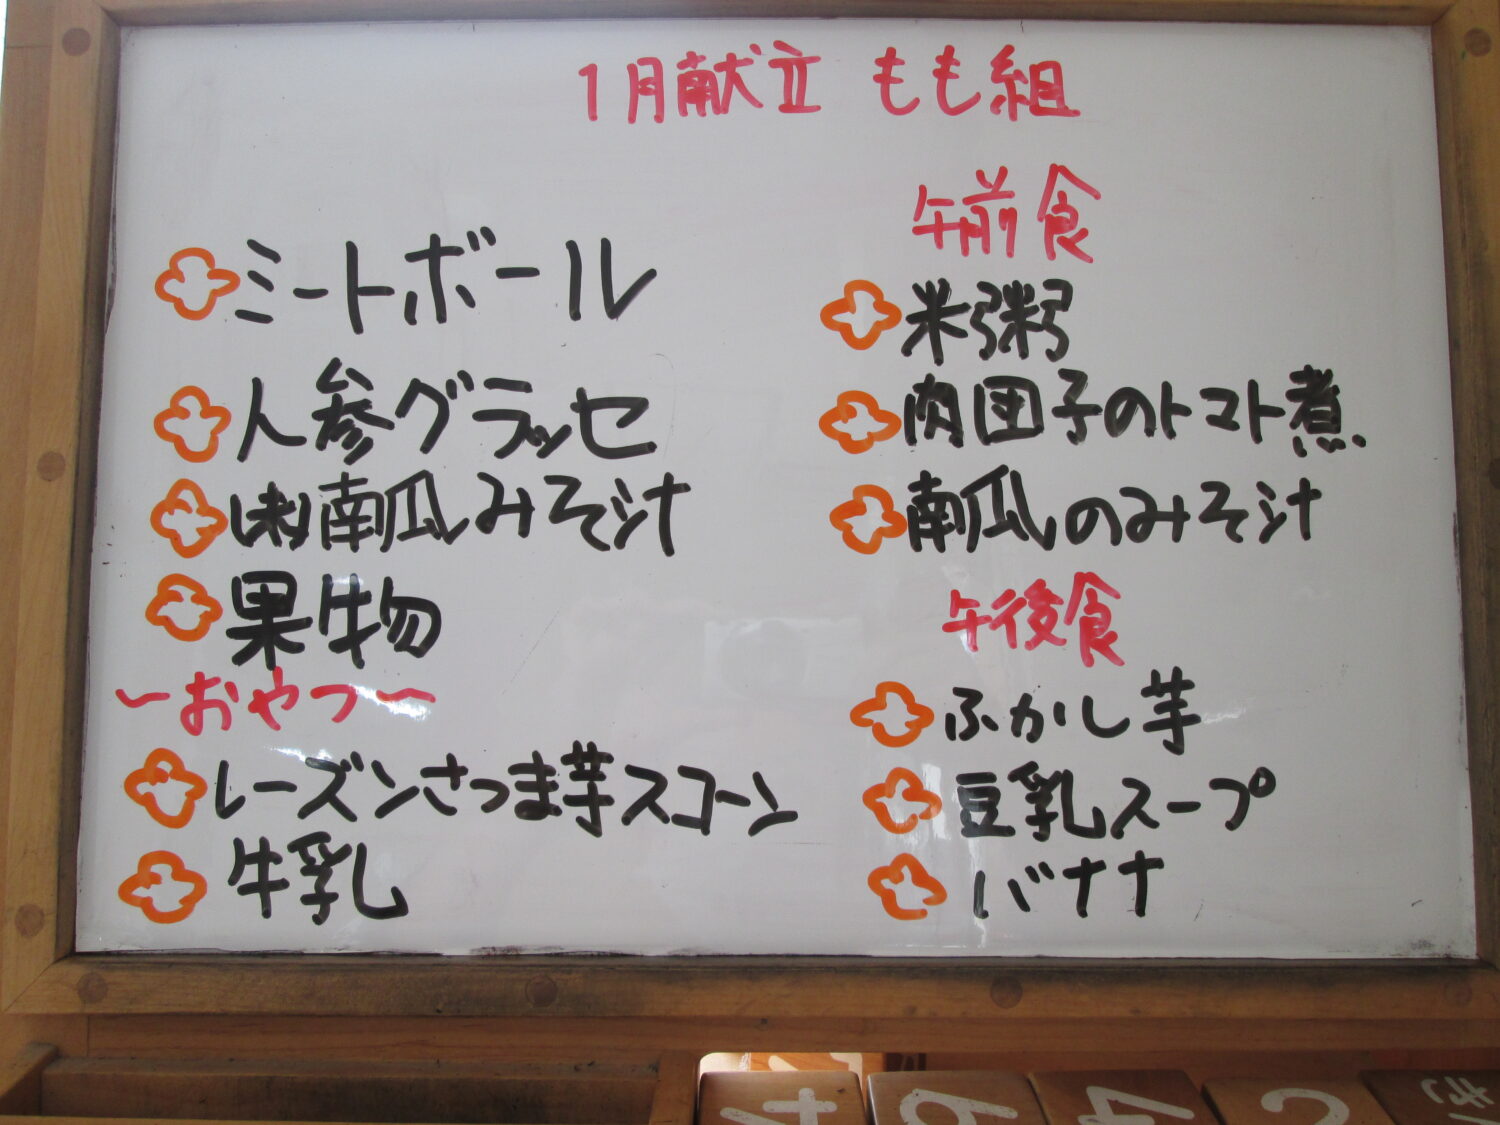 1月献立 もも組
ミートボール
人参グラッセ
南瓜みそ汁
果物
～おやつ～
レーズンさつま芋スコーン
牛乳
午前食
米粥
肉団子のトマト煮
南瓜のみそ汁
午後食
ふかし芋
豆乳スープ
バナナ